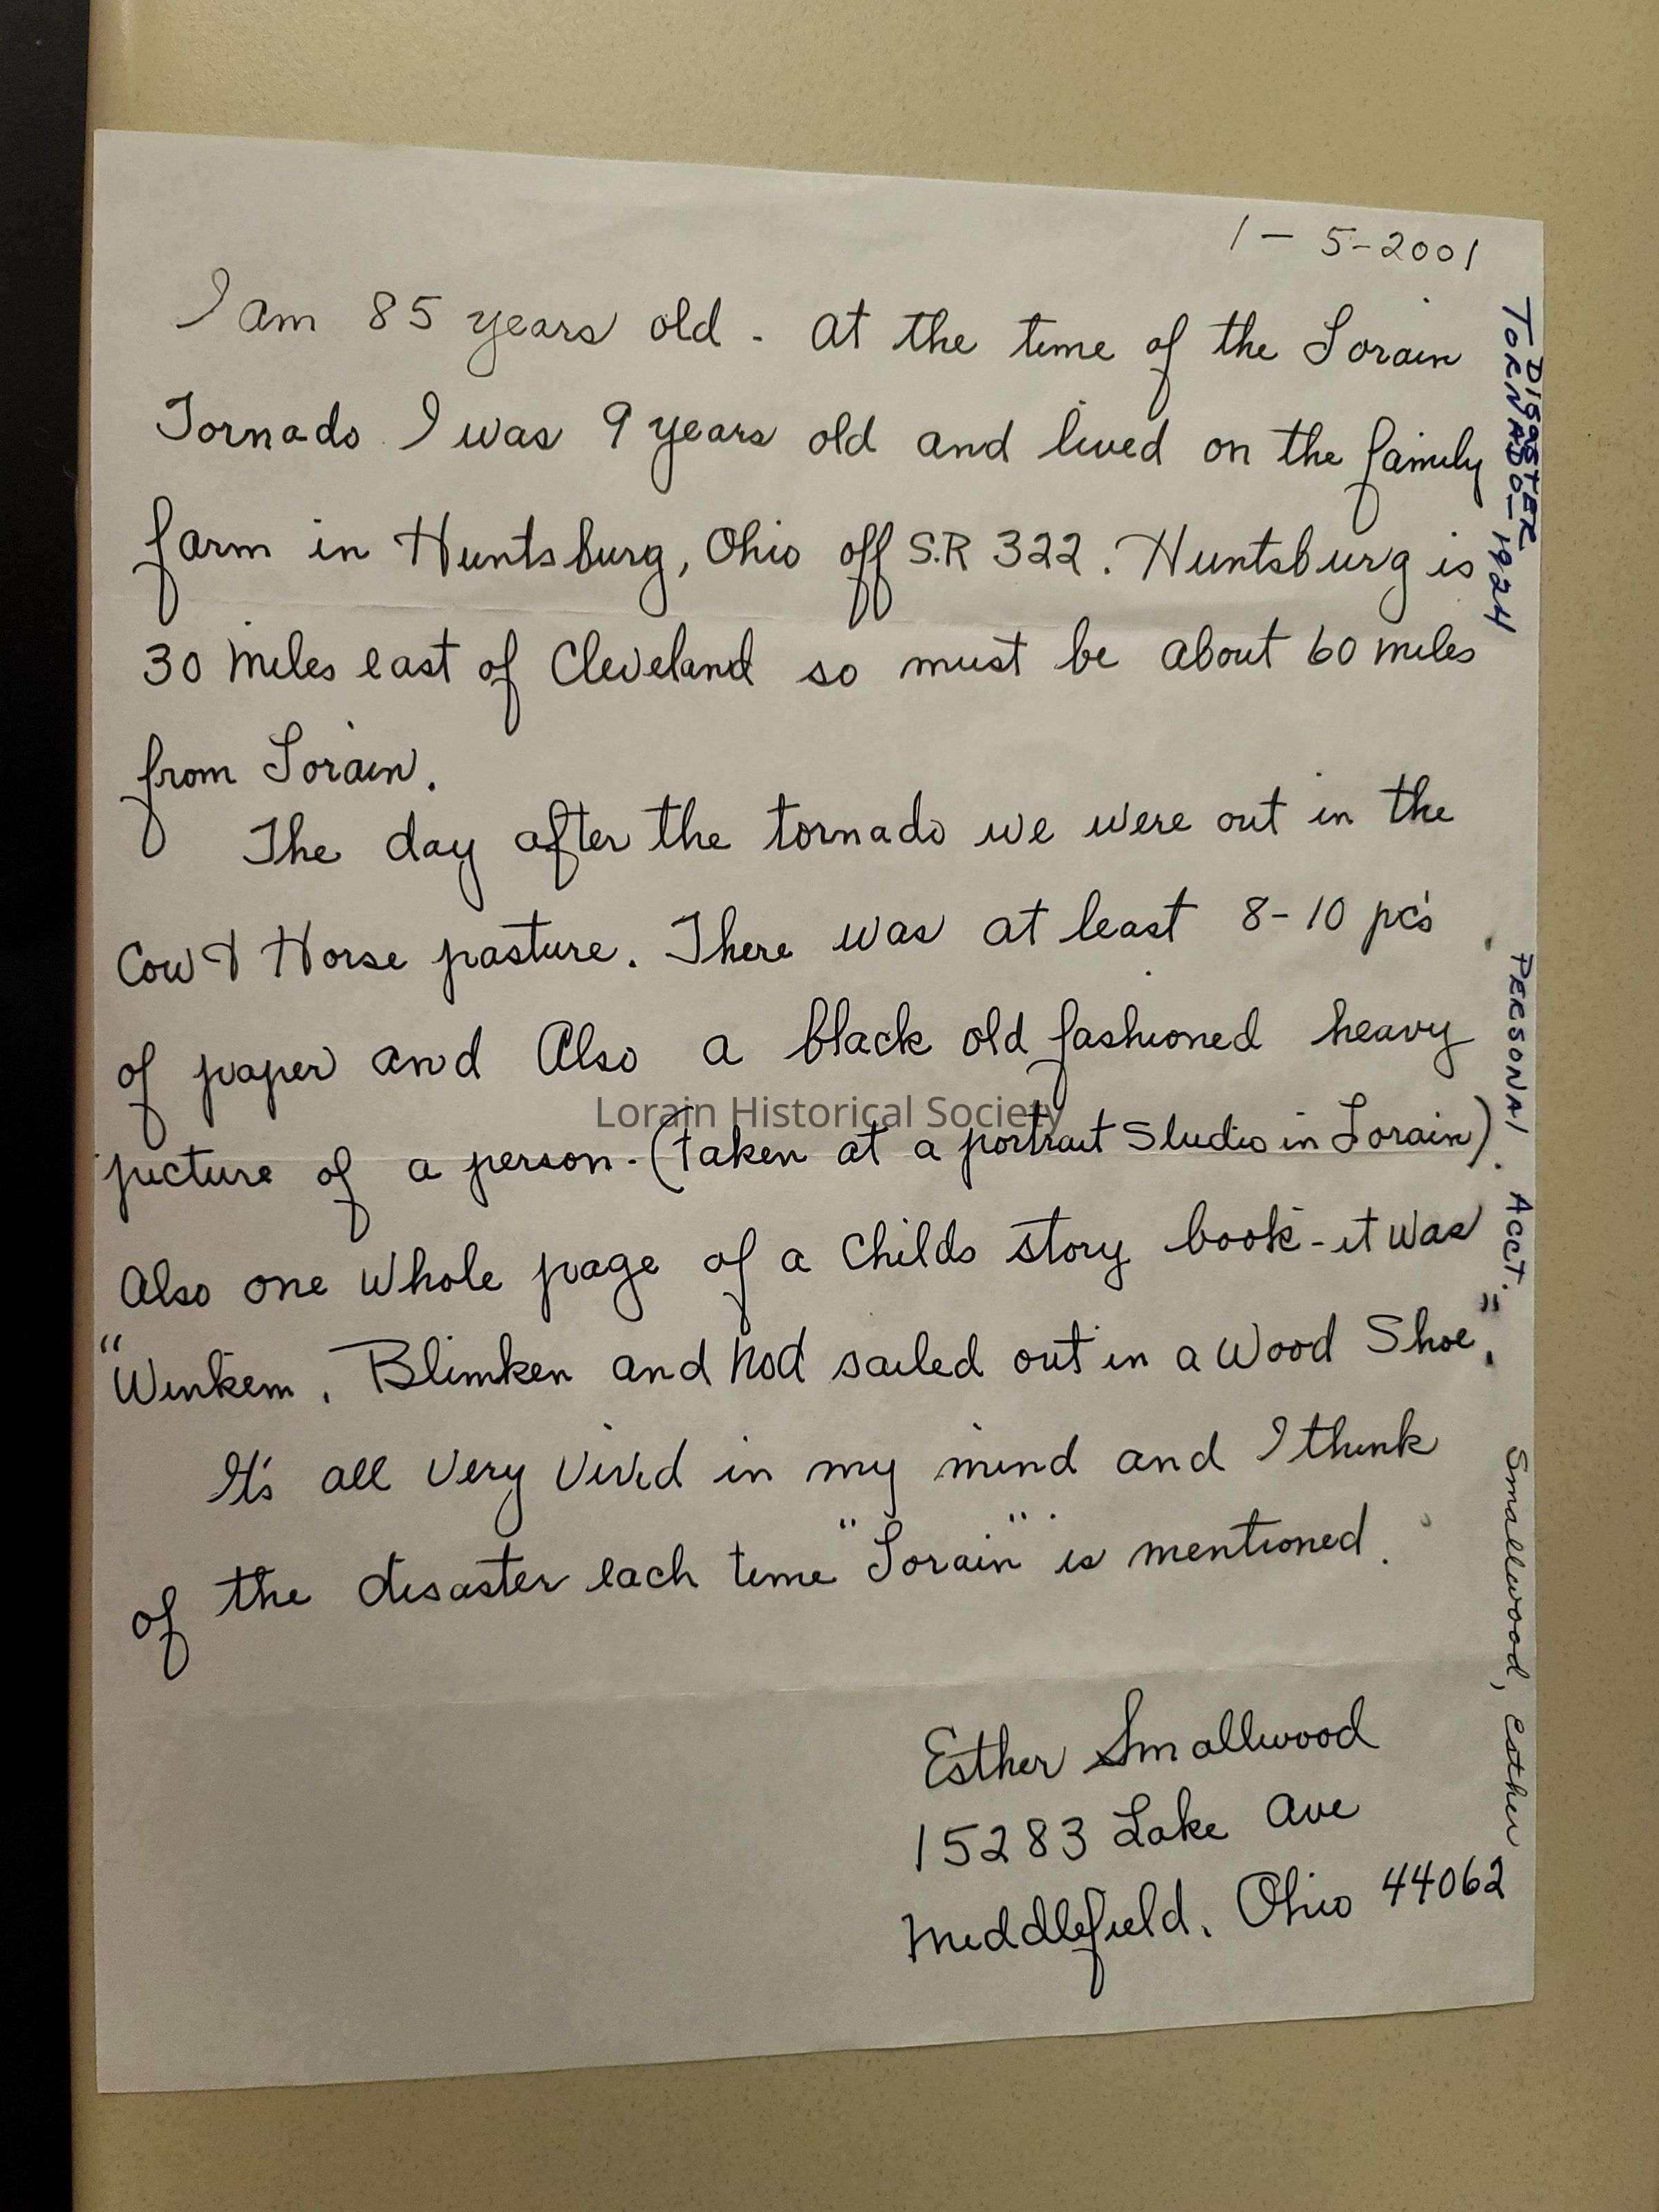 1 - 5-2001
I am 85 years old - at the time of the Lorain
Tornado I was 9 years old and lived on the family
farm in Huntsburg, Ohio off S.R 322. Huntsburg is
30 miles east of Cleveland so must be about 60 miles
from Lorain.
The day after the tornado we were out in the
Cow & Horse pasture. There was at least 8-10 pc's
of paper and Also a black old fashioned heavy
picture of a person - (taken at a portrait Studio in Lorain).
Also one whole page of a childs story book - it was
"Winkem, Blimken and nod sailed out in a wood Shoe".
It's all very vivid in my mind and I think
of the disaster each time "Lorain" is mentioned.
Esther Smallwood
15283 Lake Ave
Middlefield, Ohio 44062
DISASTER
TORNADO-1924
PERSONAL ACCT.
Smallwood, Esther
Lorain Historical Society